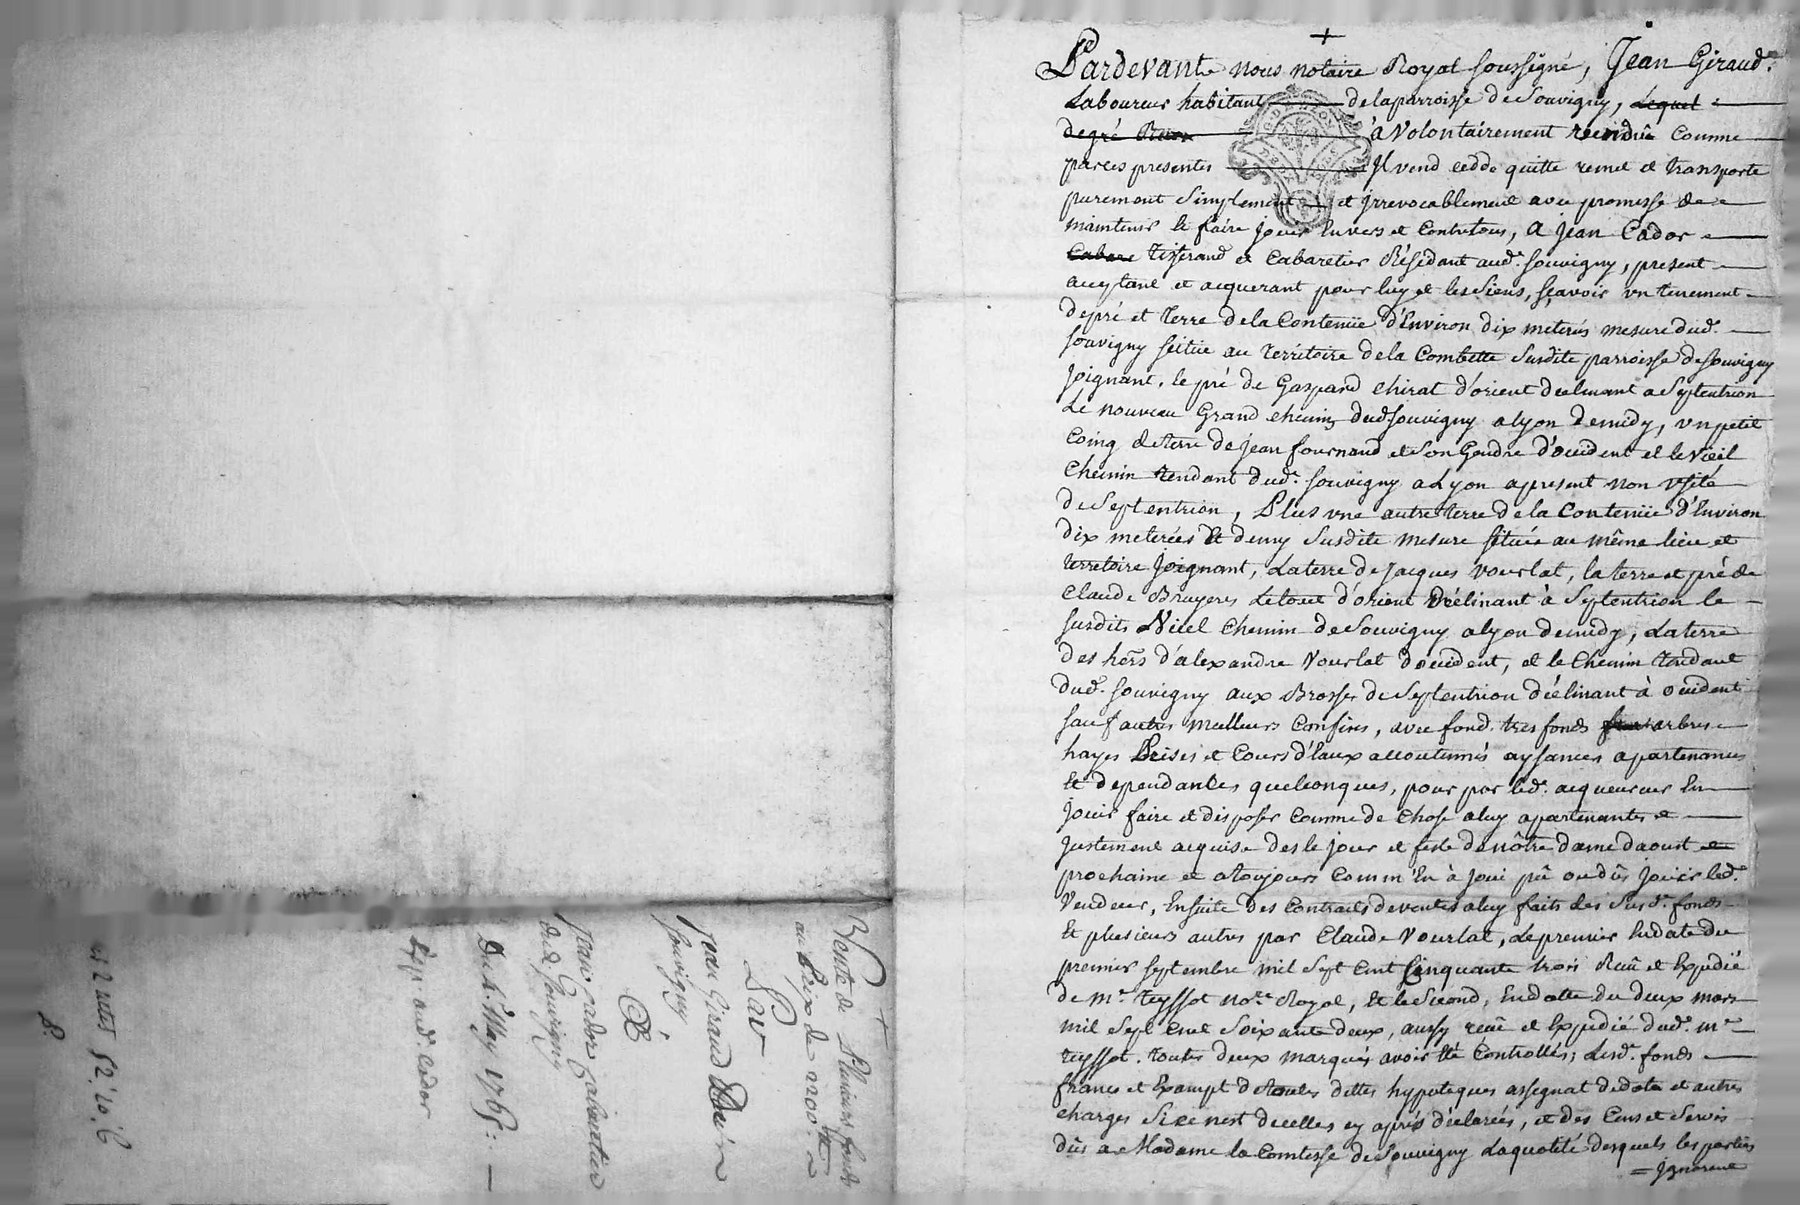 +
Pardevant nous notaire Royal soussigné, Jean Giraud.
Laboureur habitant de la parroisse de Souvigny, Lequel
de gré à Volontairement vendu comme
par ces presentes Il vend cedde quitte remet et transporte
purement Simplement et Irrevocablement avec promesse de
maintenir et faire jouir Envers et Contre tous, A Jean Cador
Tisserand et Cabaretier Résidant aud. Souvigny, present
aceptant et acquerant pour luy et les Siens, sçavoir un tenement
de pré et terre de la Contenüe d'Environ dix meterés mesure dud.
Souvigny scitué au territoire de la Combette Susdite parroisse de Souvigny
Joignant, le pré de Gaspard Chirat d'orient declinant a Septentrion
Le nouveau Grand chemin dud. Souvigny a Lyon de midy, un petit
Coing de terre de Jean fournand et Son Gendre d'occident et le Vieil
Chemin tendant dud. Souvigny a Lyon apresent non usité
de Septentrion, Plus une autre terre de la Contenüe d'Environ
dix meterées Et demy Susdite mesure située au même lieu et
territoire Joignant, La terre de Jacques Vourlat, la terre et pré de
Claude Bruyeres Le tout d'orient Déclinant à Septentrion le
susdits Vieil Chemin de Souvigny a Lyon de midy, La terre
des hoirs d'alexandre Vourlat d'occident, et le Chemin tendant
dud. Souvigny aux Brosses de Septentrion déclinant à occident
sauf autres meilleurs Confins, avec fond tres fonds arbres
hayes Prises et Cours d'Eaux accoutumés aysances apartenances
Et dependances quelconques, pour par led. acquereur En
jouir faire et disposer comme de chose a luy apartenante et
justement acquise des le jour et feste de nôtre dame daoust
prochaine et a toujours Comm'En à joui pû ou dû jouir led.
Vendeur, Ensuite des Contracts de ventes a luy faits des Susd. fonds
Et plusieurs autres par Claude Vourlat, Le premier En date du
premier Septembre mil Sept Cent Cinquante trois Reçû et Expedié
de Me. Teyssot no.re Royal, Et le Second, En datte du deux mars
mil Sept Cent Soixante deux, aussy reçû et Expedié dud. Me.
Teyssot. toutes deux marqués avoir Eté Controllés; Lesd. fonds
francs et Exempt de toutes dettes hypoteques assegnat de dote et autres
charges Si ce nest de celles cy aprés déclarées, et des Cens et Servis
dûs a Madame la Comtesse de Souvigny La quotité desquels les parties
= Ignorent
+
Vente de Plusieurs fonds
au Prix de 2200.
Par
Jean Giraud
Souvigny
à
Jean Cador Cabaretier
dud. Souvigny
Du 4. May 1765:
Exp. aud. Cador
8.